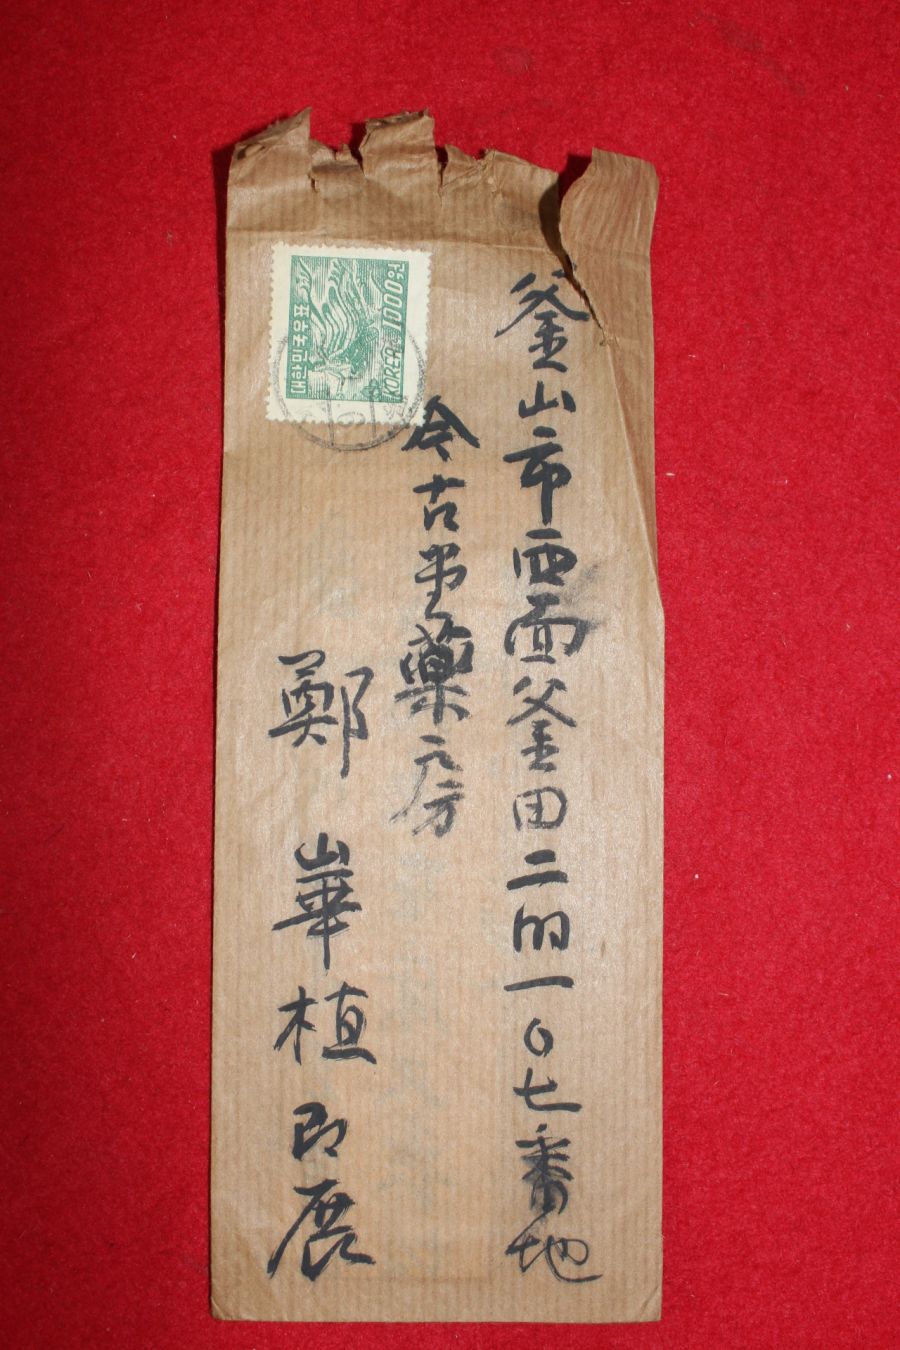 釜山市西面釜田二的一〇七番地
今古堂藥房
鄭崋植 即展
1000원
KOREA
대한민국우표